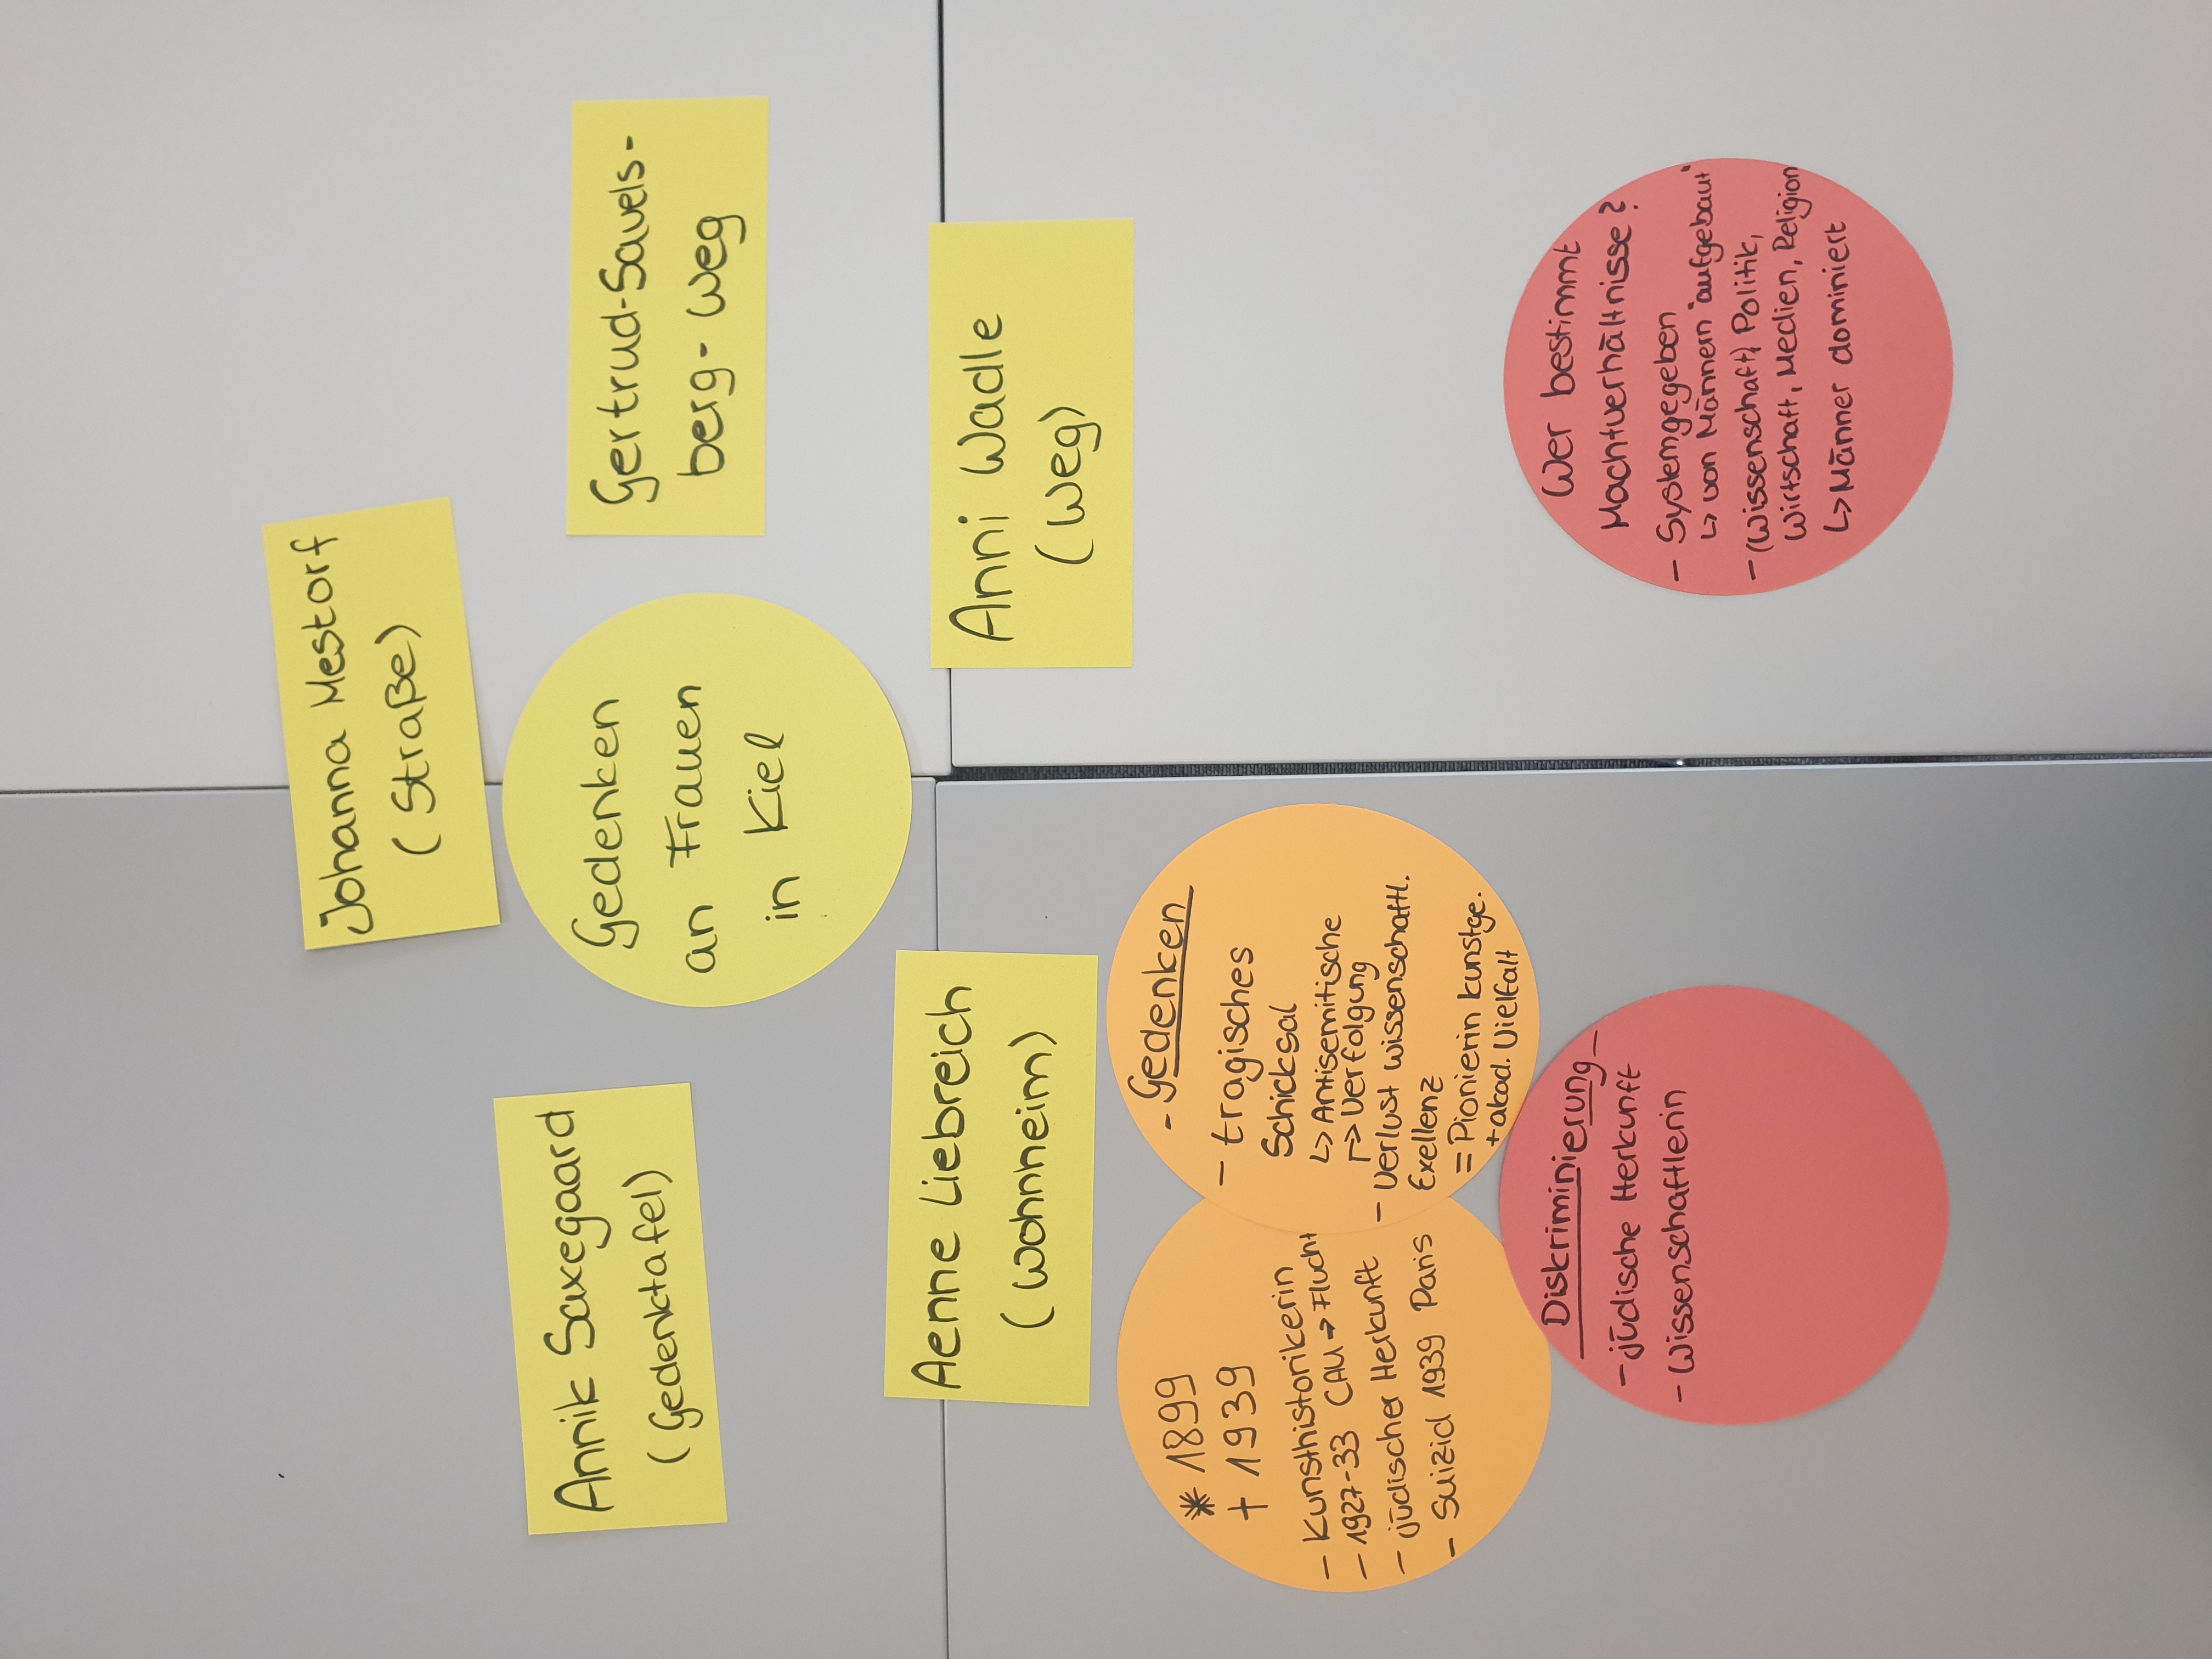 Johanna Mestorf
(Straße)
Annik Saxegaard
(Gedenktafel)
Gedenken
an Frauen
in Kiel
Gertrud-Sauels-
berg-Weg
Aenne Liebreich
(Wohnheim)
Anni Wadle
(Weg)
* 1899
† 1939
- Kunsthistorikerin
- 1927-33 CAU → Flucht
- jüdischer Herkunft
- Suizid 1939 Paris
- Gedenken
- tragisches
Schicksal
↳ Antisemitische
↱ Verfolgung
- Verlust wissenschaftl.
Exellenz
= Pionierin Kunstge.
+ akad. Vielfalt
Diskriminierung
- jüdische Herkunft
- Wissenschaftlerin
Wer bestimmt
Machtverhältnisse?
- Systemgegeben
↳ von Männern "aufgebaut"
- (Wissenschaft) Politik,
Wirtschaft, Medien, Religion
↳ Männer dominiert